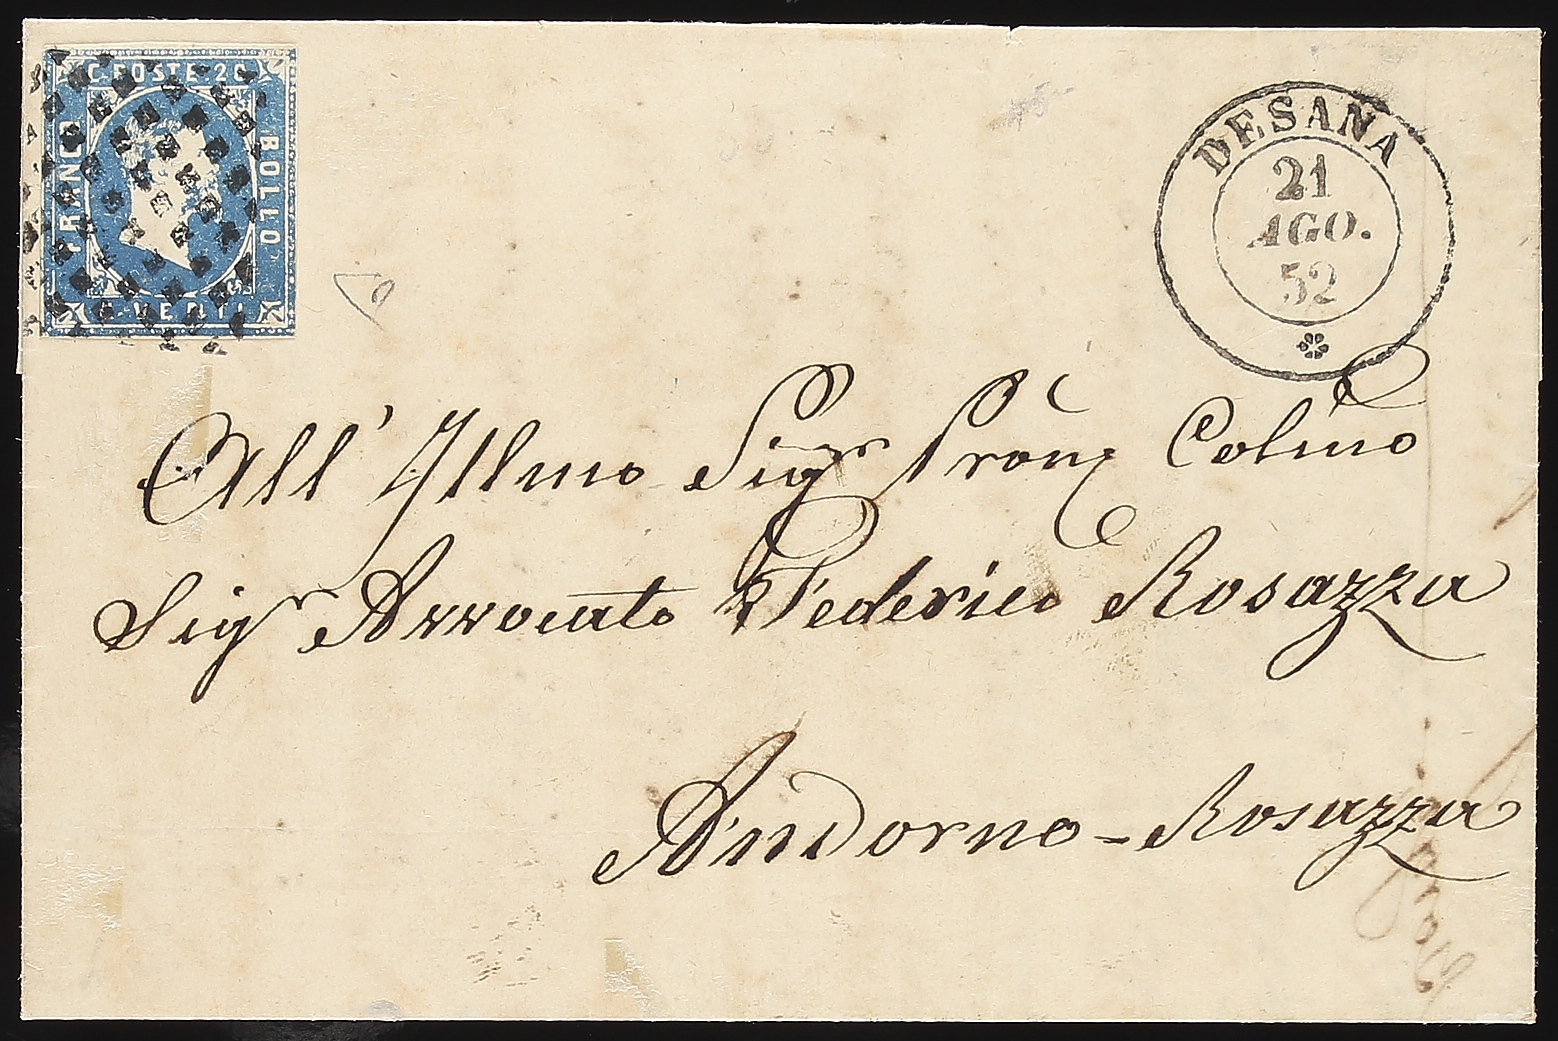 C. POSTE. 20
FRANCO
BOLLO
C. VENTI
DESANA
21
AGO.
52
All' Illmo Sigr Pron Colmo
Sigr Avvocato Federico Rosazza
Andorno - Rosazza